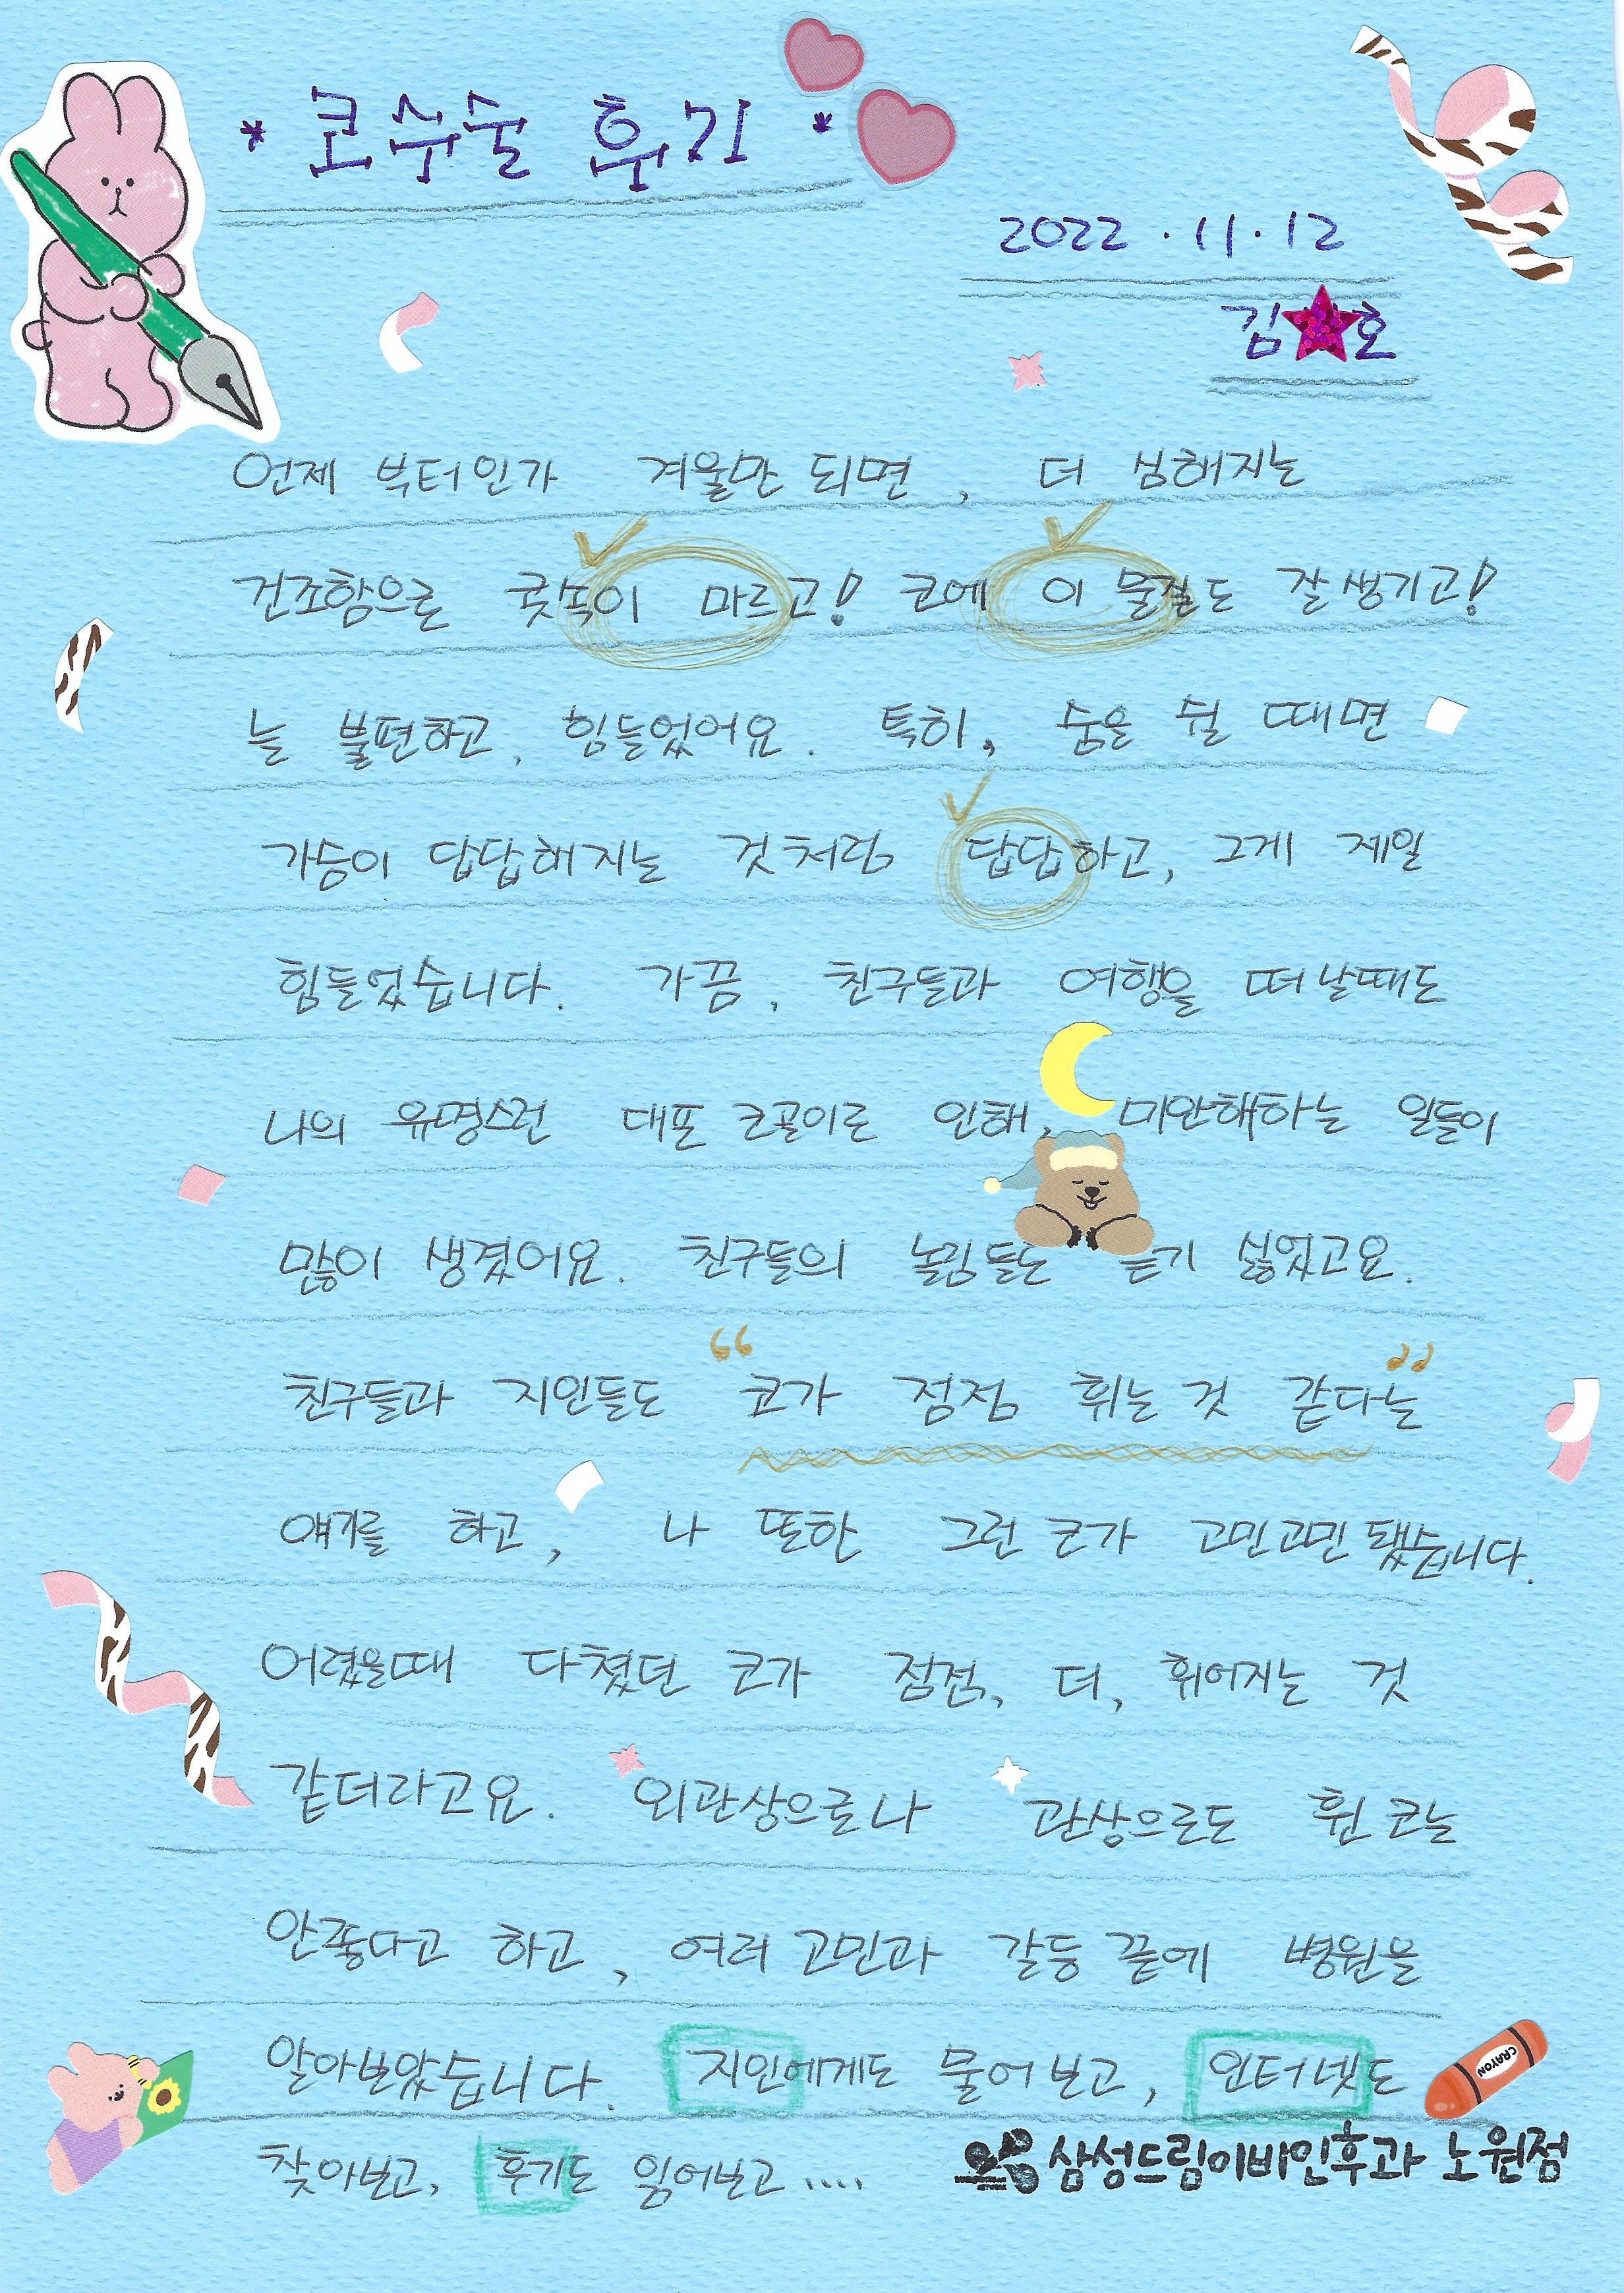 * 코수술 후기 *
2022 . 11 . 12
김★호
언제 부터인가 겨울만 되면, 더 심해지는
건조함으로 콧속이 마르고! 코에 이 물질도 잘생기고!
늘 불편하고, 힘들었어요. 특히, 숨을 쉴 때면
가슴이 답답해지는 것처럼 답답하고, 그게 제일
힘들었습니다. 가끔, 친구들과 여행을 떠날때도
나의 유명스런 대포 코골이로 인해, 미안해하는 일들이
많이 생겼어요. 친구들의 놀림들도 듣기 싫었고요.
친구들과 지인들도 “코가 점점 휘는 것 같다”는
얘기를 하고, 나 또한 그런 코가 고민고민 됐습니다.
어렸을때 다쳤던 코가 점점, 더, 휘어지는 것
같더라고요. 외관상으로나 관상으로도 휜 코는
안좋다고 하고, 여러 고민과 갈등 끝에 병원을
알아보았습니다. 지인에게도 물어보고, 인터넷도
CRAYON
찾아보고, 후기도 읽어보고 ....
삼성드림이비인후과 노원점